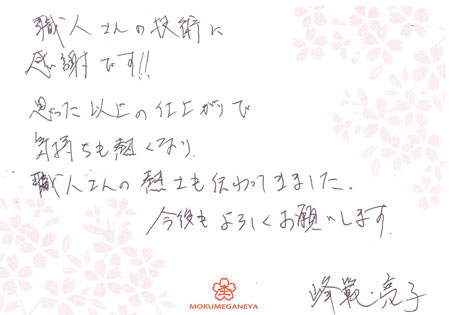 職人さんの技術に
感謝です!!
思った以上の仕上がりで
気持ちも熱くなり、
職人さんの熱さも伝わってきました。
今後もよろしくお願いします。
MOKUMEGANEYA
・亮子